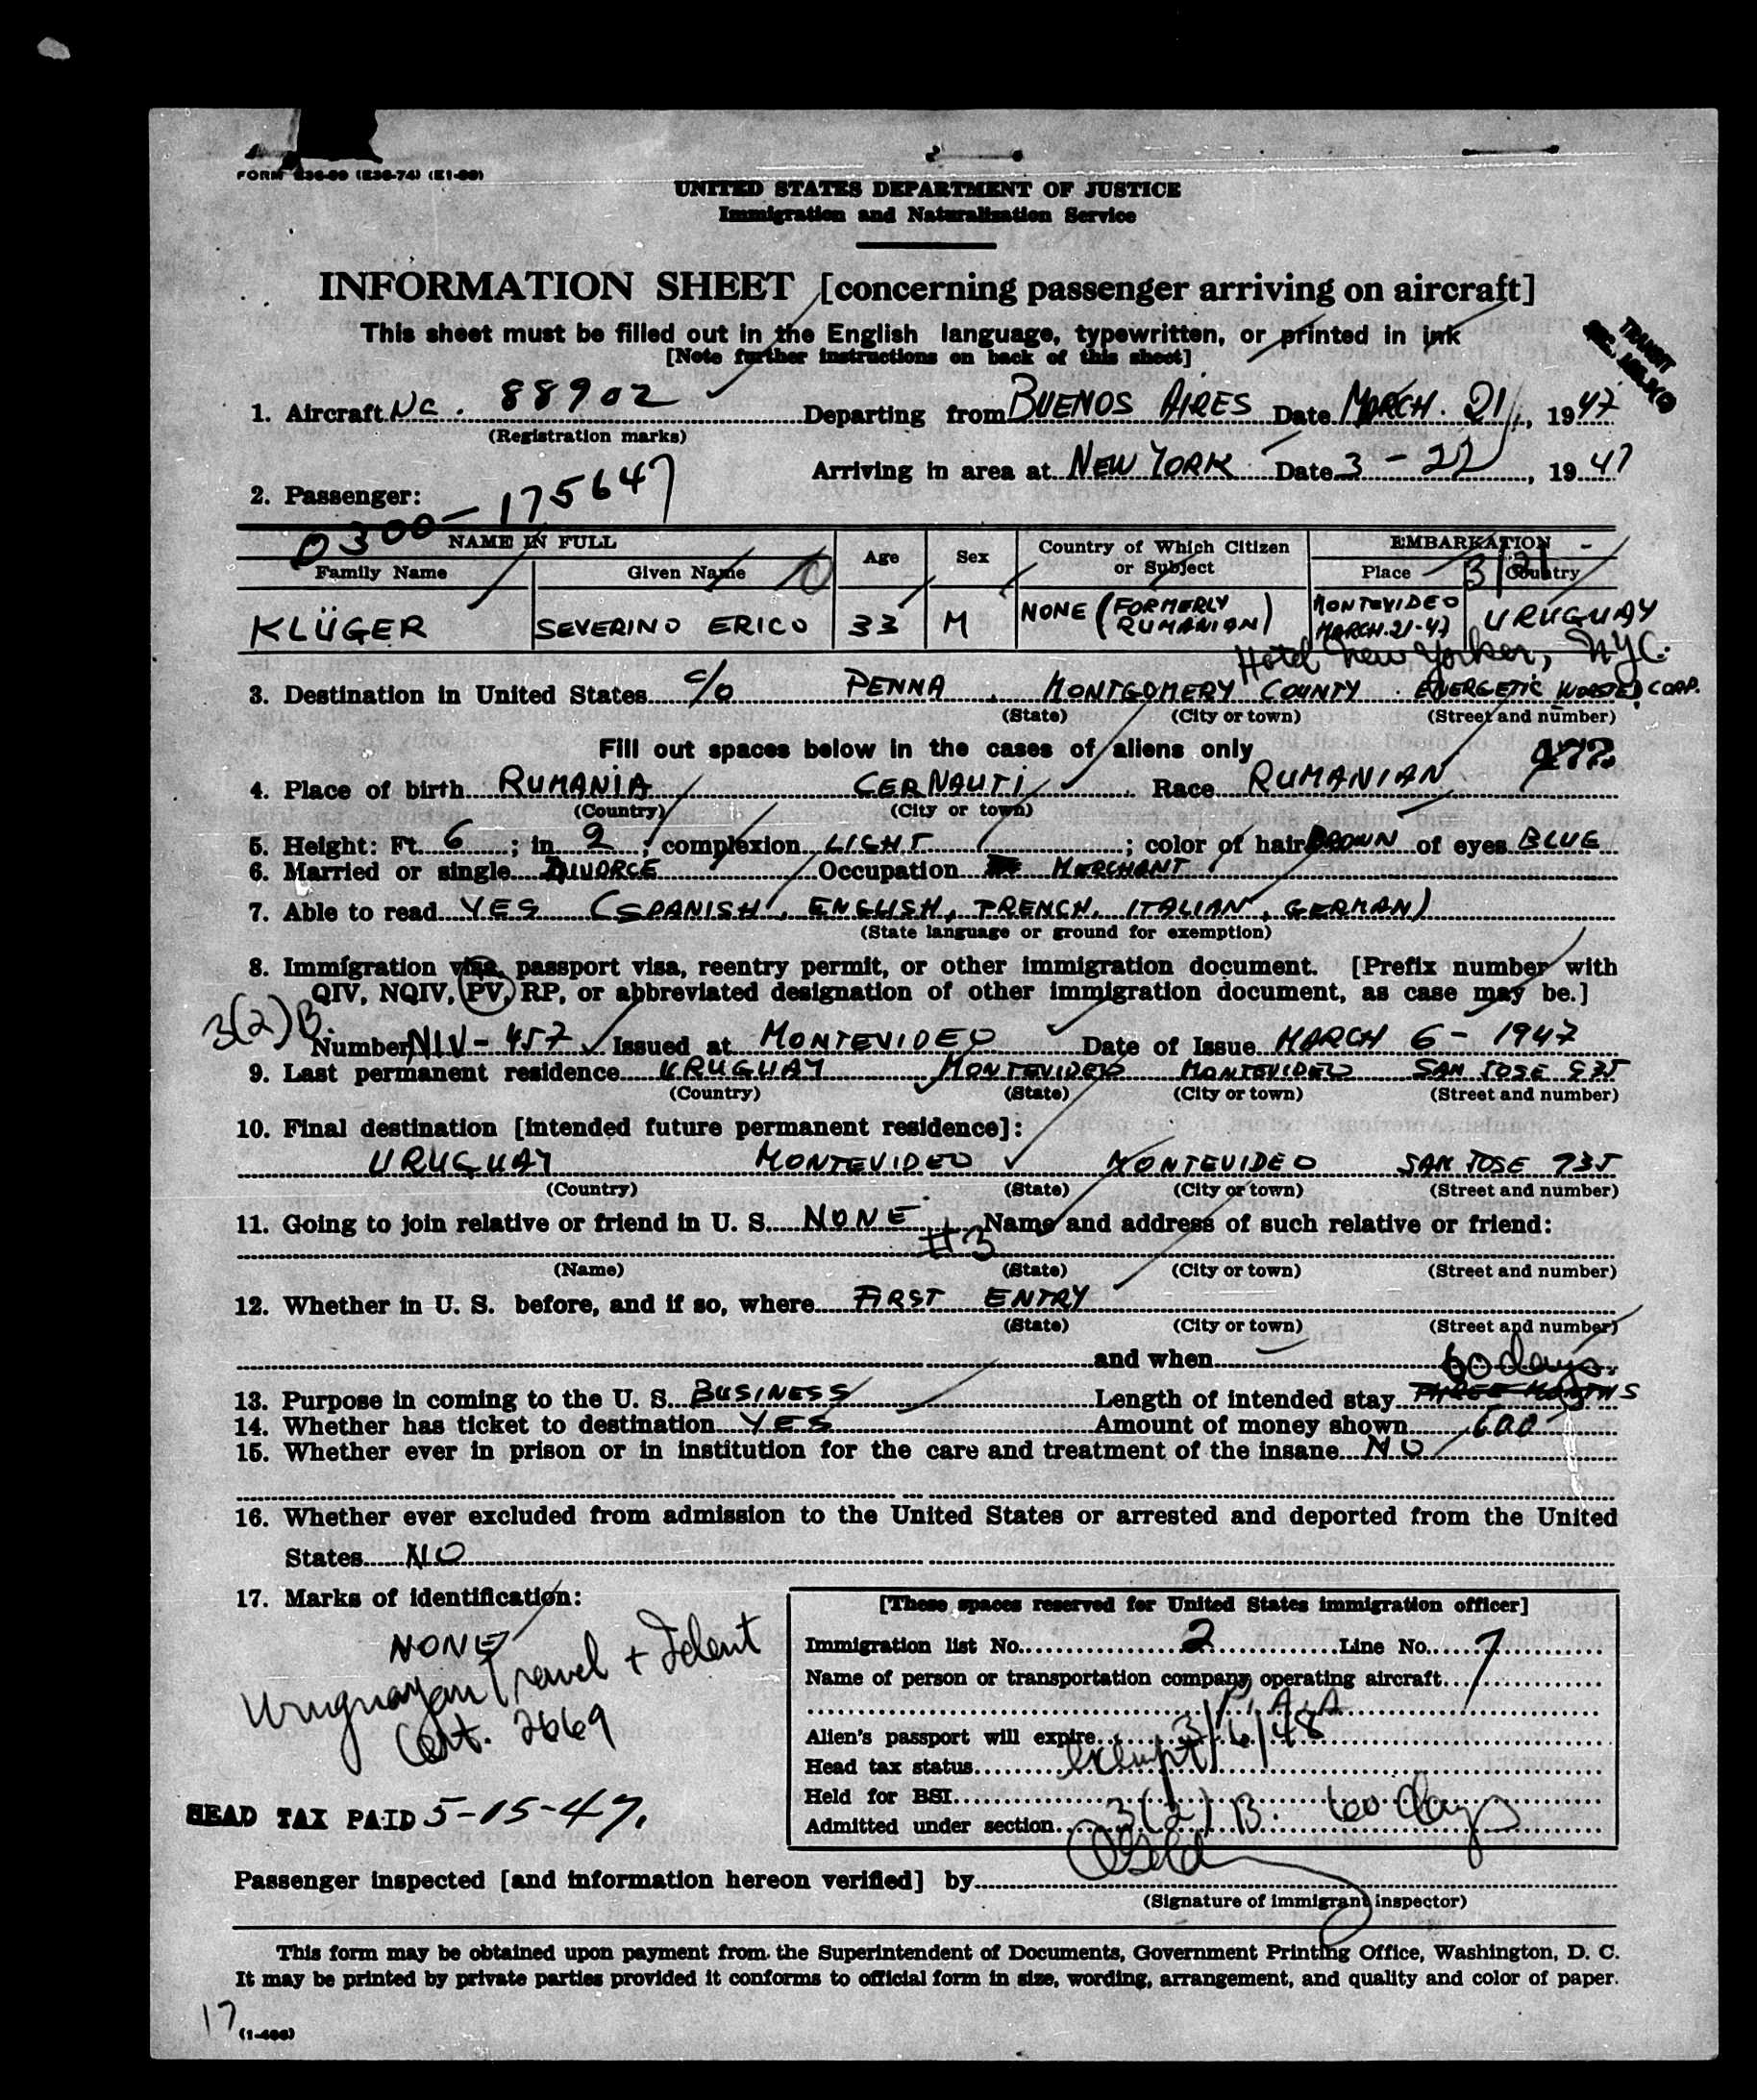 FORM (E30-74) (E1-99)
UNITED STATES DEPARTMENT OF JUSTICE
Immigration and Naturalization Service
INFORMATION SHEET [concerning passenger arriving on aircraft]
This sheet must be filled out in the English language, typewritten, or printed in ink
[Note further instructions on back of this sheet]
TRANSIT
1. Aircraft Nc. 88902 Departing from BUENOS AIRES Date MARCH. 21, 1947
(Registration marks)
Arriving in area at NEW YORK Date 3-22, 1947
2. Passenger:
0300-175647
NAME IN FULL Age Sex Country of Which Citizen or Subject EMBARKATION
Family Name Given Name Place Country
3/21
KLÜGER SEVERINO ERICO 33 M NONE (FORMERLY RUMANIAN) MONTEVIDEO MARCH.21-47 URUGUAY
Hotel New Yorker, NYC.
3. Destination in United States c/o PENNA. MONTGOMERY COUNTY. ENERGETIC WORSTED CORP.
(State) (City or town) (Street and number)
Fill out spaces below in the cases of aliens only
4. Place of birth RUMANIA CERNAUTI Race RUMANIAN
(Country) (City or town)
5. Height: Ft. 6; in. 2; complexion LIGHT; color of hair BROWN of eyes BLUE
6. Married or single DIVORCE Occupation MERCHANT
7. Able to read YES (SPANISH, ENGLISH, FRENCH, ITALIAN, GERMAN)
(State language or ground for exemption)
8. Immigration visa, passport visa, reentry permit, or other immigration document. [Prefix number with
QIV, NQIV, PV, RP, or abbreviated designation of other immigration document, as case may be.]
3(2)B.
Number NIV-457 Issued at MONTEVIDEO Date of Issue MARCH 6-1947
9. Last permanent residence URUGUAY MONTEVIDEO MONTEVIDEO SAN JOSE 935
(Country) (State) (City or town) (Street and number)
10. Final destination [intended future permanent residence]:
URUGUAY MONTEVIDEO MONTEVIDEO SAN JOSE 935
(Country) (State) (City or town) (Street and number)
11. Going to join relative or friend in U. S. NONE. Name and address of such relative or friend:
#3
(Name) (State) (City or town) (Street and number)
12. Whether in U. S. before, and if so, where FIRST ENTRY
(State) (City or town) (Street and number)
and when
60 days.
13. Purpose in coming to the U. S. BUSINESS Length of intended stay THREE MONTHS
14. Whether has ticket to destination YES Amount of money shown 600
15. Whether ever in prison or in institution for the care and treatment of the insane NO
16. Whether ever excluded from admission to the United States or arrested and deported from the United
States NO
17. Marks of identification:
NONE
Uruguayan Travel + Ident
Cert. 2669
HEAD TAX PAID 5-15-47.
[These spaces reserved for United States immigration officer]
Immigration list No. 2 Line No. 7
Name of person or transportation company operating aircraft
P.A.A
Alien's passport will expire 3/6/48
Head tax status exempt
Held for BSI
Admitted under section 3(2)B. 60 days
Passenger inspected [and information hereon verified] by
(Signature of immigrant inspector)
This form may be obtained upon payment from the Superintendent of Documents, Government Printing Office, Washington, D. C.
It may be printed by private parties provided it conforms to official form in size, wording, arrangement, and quality and color of paper.
17